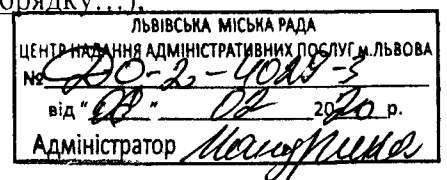 орядку...).
ЛЬВІВСЬКА МІСЬКА РАДА
ЦЕНТР НАДАННЯ АДМІНІСТРАТИВНИХ ПОСЛУГ м.ЛЬВОВА
№ ДО-2-4029-3
від " " 02 2020 р.
Адміністратор